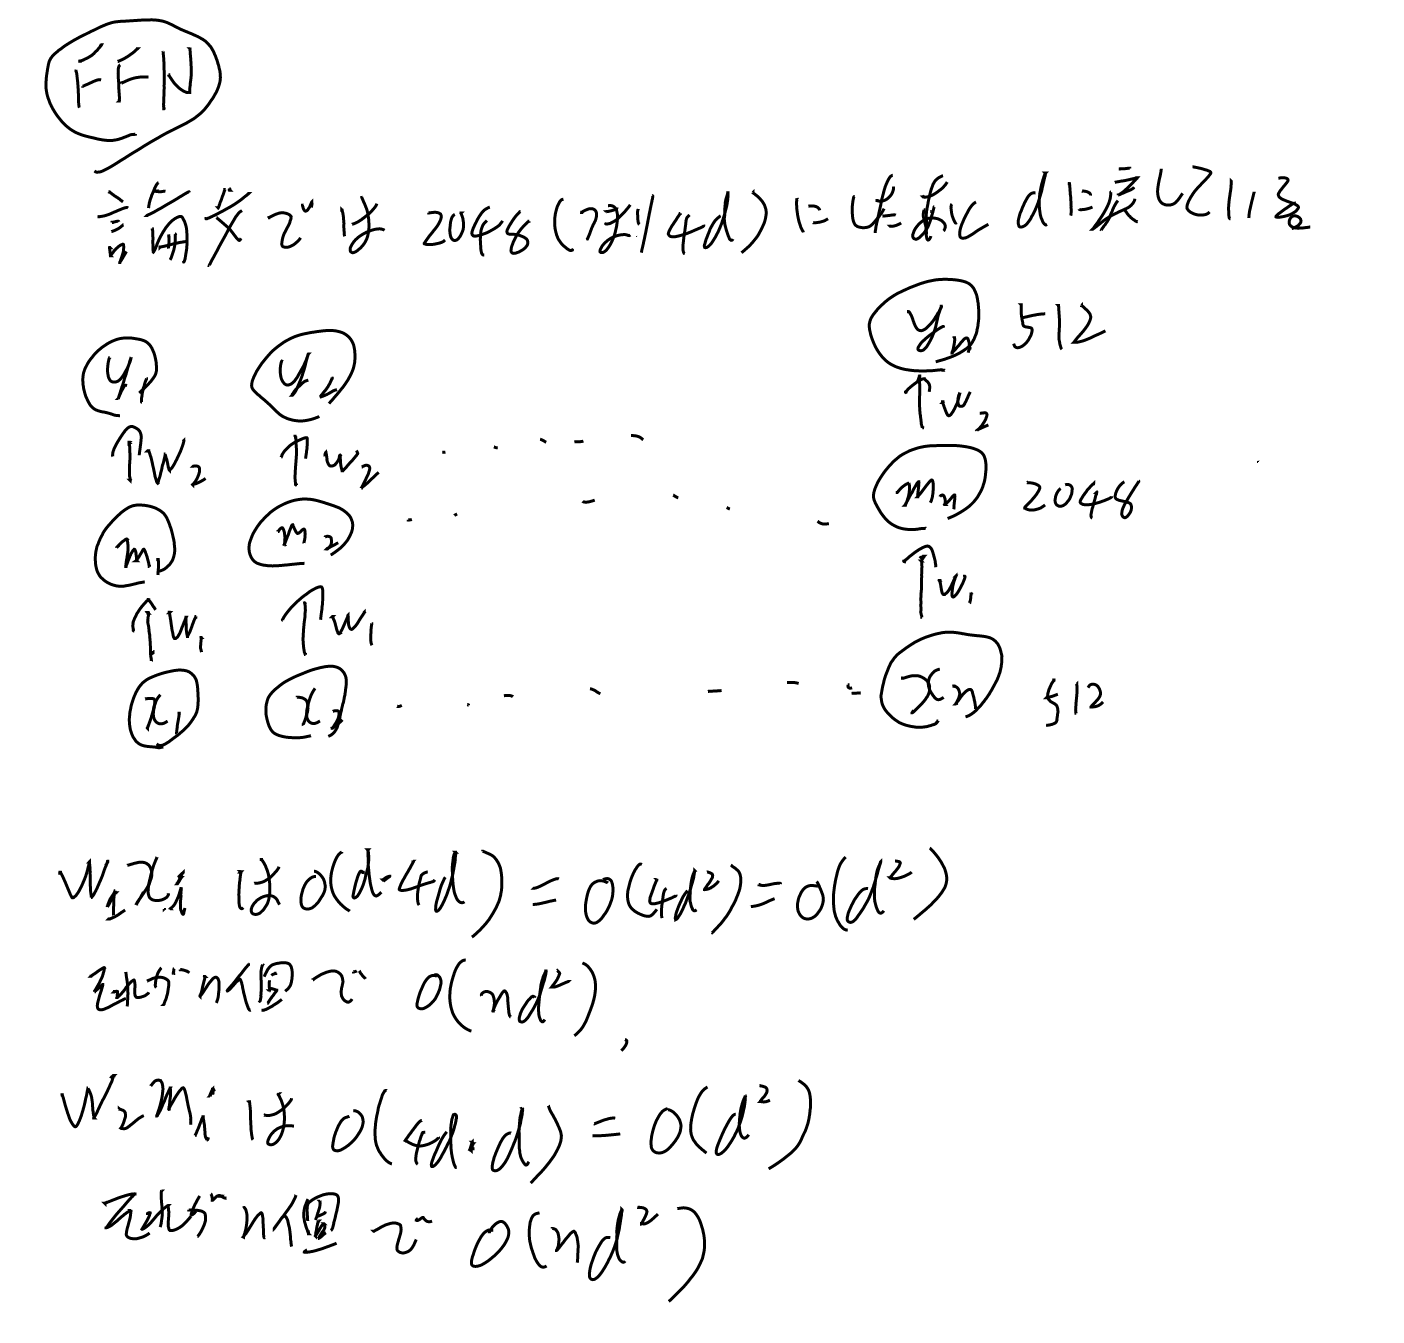 FFN
論文では 2048 (つまり 4d) にしたあと dに戻している
y₁ y₂ yₙ 512
↑W₂ ↑W₂ ↑W₂
m₁ m₂ ..... mₙ 2048
↑W₁ ↑W₁ ↑W₁
x₁ x₂ ..... xₙ 512
W₁xᵢ は O(d・4d) = O(4d²) = O(d²)
それがn個で O(nd²),
W₂mᵢ は O(4d・d) = O(d²)
それがn個で O(nd²)